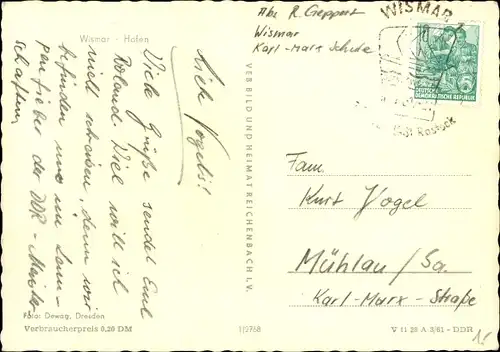 Wismar - Hafen
Liebe Vogels!
Viele Grüße sendet Euch
Roland. Viel will ich
nicht schreiben, denn wir
befinden uns im Lam-
penfieber der DDR - Meister-
schaften
Foto: Dewag, Dresden
Verbraucherpreis 0,20 DM
VEB BILD UND HEIMAT REICHENBACH I. V.
1/2768
Abs R. Geppert
Wismar
Karl-Marx Schule
WISMAR
Rostock
DEUTSCHE
DEMOKRATISCHE REPUBLIK
Fam.
Kurt Vogel
Mühlau / Sa.
Karl-Marx-Straße
V 11 28 A 3/61 - DDR